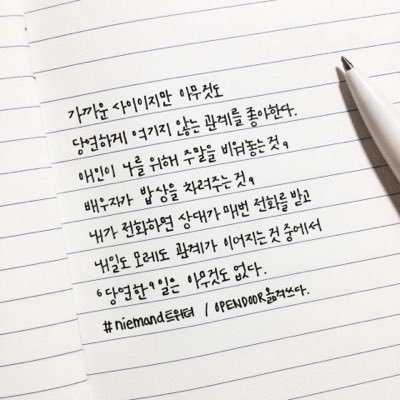 가까운 사이이지만 아무것도
당연하게 여기지 않는 관계를 좋아한다.
애인이 나를 위해 주말을 비워놓는 것,
배우자가 밥상을 차려주는 것,
내가 전화하면 상대가 매번 전화를 받고
내일도 모레도 관계가 이어지는 것 중에서
'당연한' 일은 아무것도 없다.
#niemand트위터 / OPENDOOR옮겨쓰다.